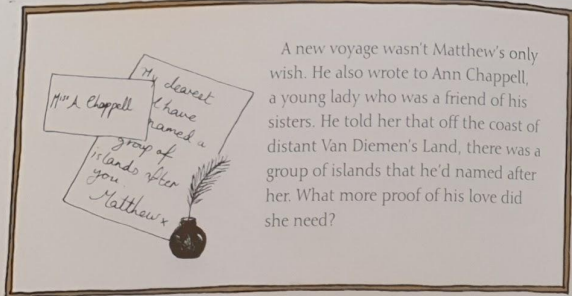 Miss A Chappell
My dearest
I have
named a
group of
islands after
you
Matthew x
A new voyage wasn't Matthew's only
wish. He also wrote to Ann Chappell,
a young lady who was a friend of his
sisters. He told her that off the coast of
distant Van Diemen's Land, there was a
group of islands that he'd named after
her. What more proof of his love did
she need?